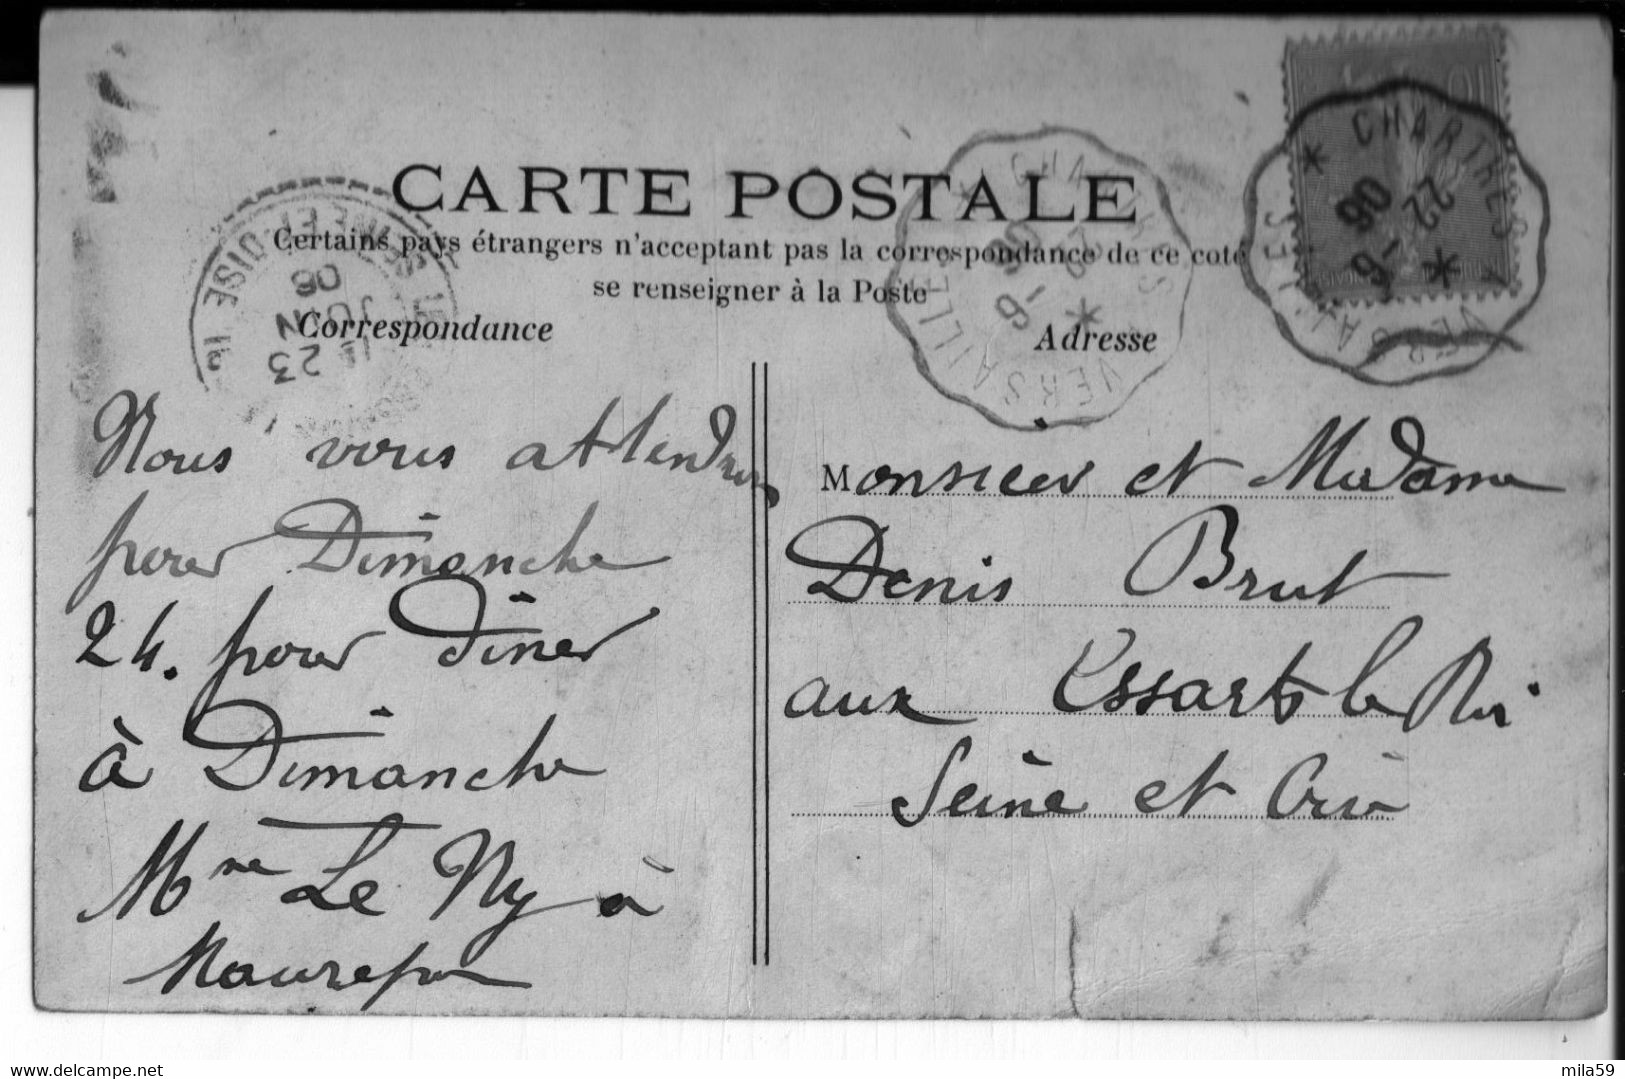 CARTE POSTALE
Certains pays étrangers n'acceptent pas la correspondance de ce coté
se renseigner à la Poste
Correspondance
Adresse
Nous vous attendrons
pour Dimanche
24. pour diner
à Dimanche
Mme Le Ny à
Maurepas
Monsieur et Madame
Denis Brut
aux Essarts le Roi
Seine et Oise
CHARTRES A VERSAILLES
22
6-
06
VERSAILLES
6-
SEINE-ET-OISE
23
JUIN
06
10
www.delcampe.net
mila59